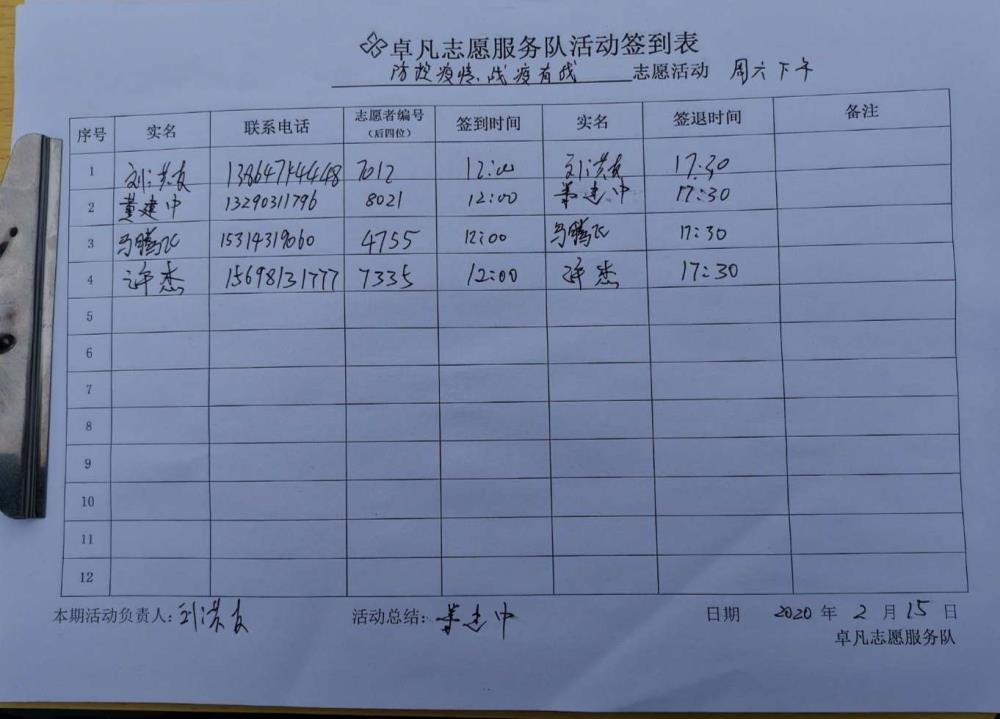 卓凡志愿服务队活动签到表
防控疫情、战疫有我 志愿活动 周六下午
序号 实名 联系电话 志愿者编号（后四位） 签到时间 实名 签退时间 备注
1 刘洪友 13864714448 7012 12:00 刘洪友 17:30
2 黄建中 13290311796 8021 12:00 黄建中 17:30
3 马腾飞 15314319060 4755 12:00 马腾飞 17:30
4 许杰 15698131777 7335 12:00 许杰 17:30
5
6
7
8
9
10
11
12
本期活动负责人：刘洪友 活动总结：黄建中 日期 2020 年 2 月 15 日
卓凡志愿服务队